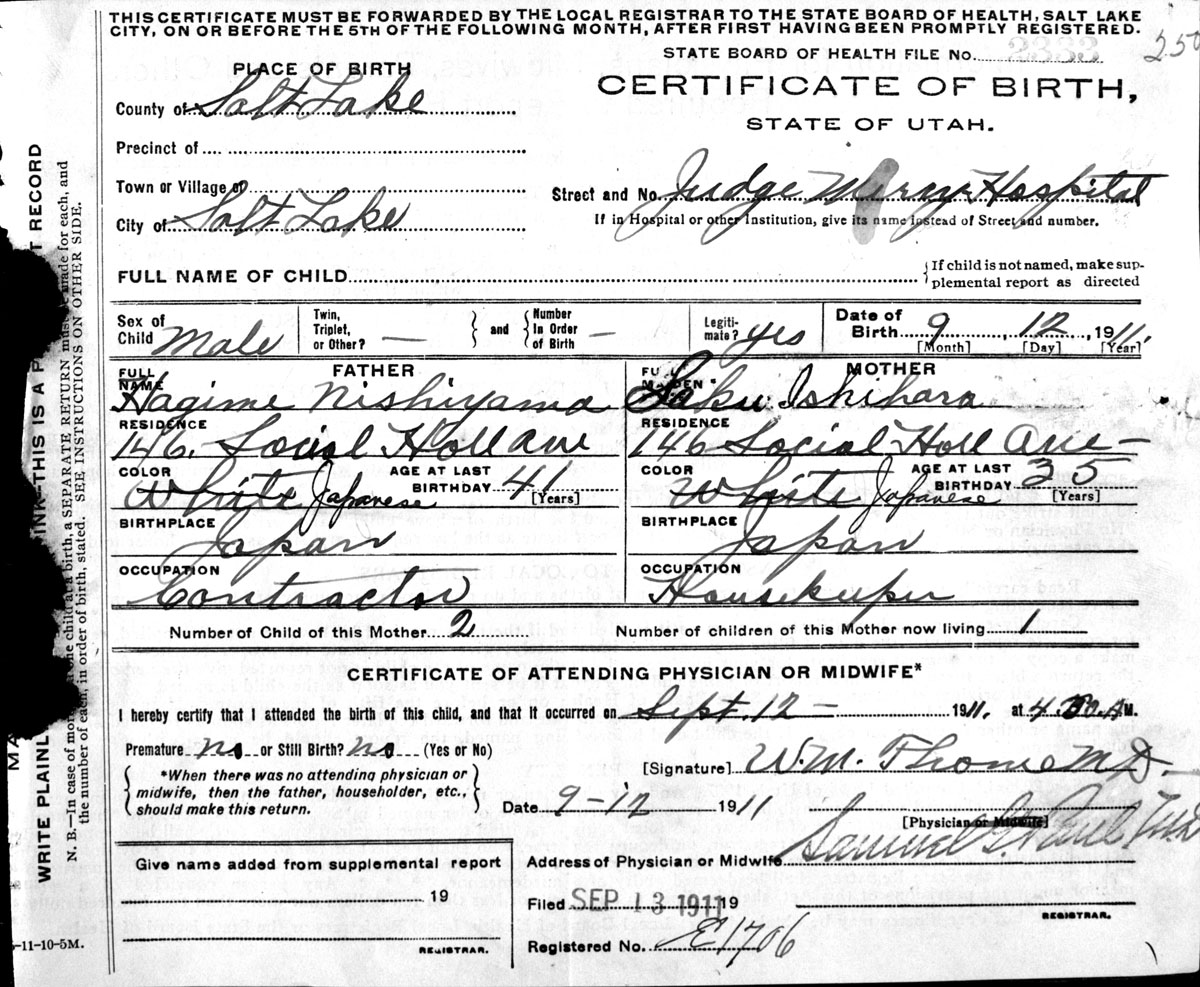 THIS CERTIFICATE MUST BE FORWARDED BY THE LOCAL REGISTRAR TO THE STATE BOARD OF HEALTH, SALT LAKE
CITY, ON OR BEFORE THE 5TH OF THE FOLLOWING MONTH, AFTER FIRST HAVING BEEN PROMPTLY REGISTERED.
STATE BOARD OF HEALTH FILE No. 3333
250
PLACE OF BIRTH
CERTIFICATE OF BIRTH,
STATE OF UTAH.
County of Salt Lake
Precinct of
Town or Village of
Street and No. Judge Mercy Hospital
City of Salt Lake
If in Hospital or other Institution, give its name instead of Street and number.
FULL NAME OF CHILD
If child is not named, make sup-
plemental report as directed
Sex of Child Male
Twin, Triplet, or Other? —
and
Number In Order of Birth —
Legiti-mate? yes
Date of Birth 9 12 1911.
[Month] [Day] [Year]
FATHER
MOTHER
FULL NAME Hagime Nishiyama
FULL MAIDEN Saku Ishihara
RESIDENCE
RESIDENCE
146. Social Hall Ave
146 Social Hall Ave —
COLOR White Japanese
AGE AT LAST BIRTHDAY 41 [Years]
COLOR White Japanese
AGE AT LAST BIRTHDAY 35 [Years]
BIRTHPLACE Japan
BIRTHPLACE Japan
OCCUPATION Contractor
OCCUPATION Housekeeper
Number of Child of this Mother 2
Number of children of this Mother now living 1
CERTIFICATE OF ATTENDING PHYSICIAN OR MIDWIFE*
I hereby certify that I attended the birth of this child, and that it occurred on Sept. 12 — 1911. at 4 A.M.
Premature no or Still Birth? no (Yes or No)
*When there was no attending physician or
midwife, then the father, householder, etc.,
should make this return.
[Signature] W.M. Thome M.D.
Date 9-12 1911
[Physician or Midwife]
Give name added from supplemental report
19
REGISTRAR.
Address of Physician or Midwife
Samuel G. Paul
Filed SEP 13 1911 19
REGISTRAR.
Registered No. E1706
-11-10-5M.
WRITE PLAINL
INK—THIS IS A P
T RECORD
N. B.—In case of more
one child at a birth, a SEPARATE RETURN must
made for each, and
the number of each, in order of birth, stated. SEE INSTRUCTIONS ON OTHER SIDE.